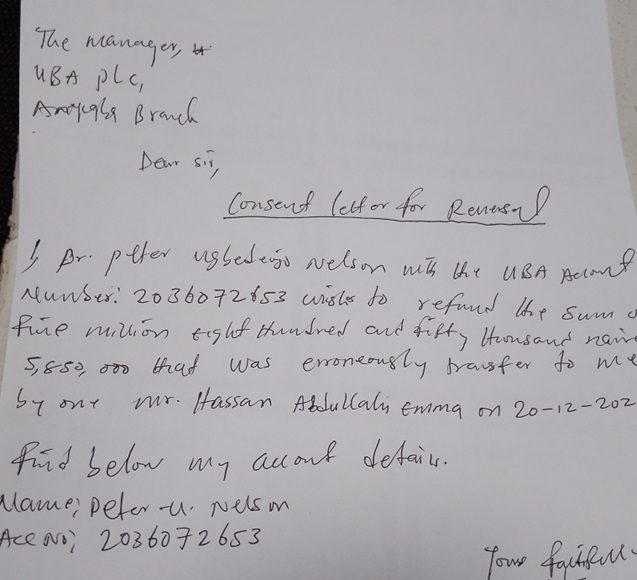 The Manager,
UBA PLC,
Anyigba Branch
Dear Sir,
Consent letter for Reversal
I Dr. Peter Ugbedeojo Nelson with the UBA Account
Number: 2036072653 wishes to refund the sum o
five million eight Hundred and fifty thousand naira
5,850,000 that was erroneously transfer to me
by one Mr. Hassan Abdullahi Emma on 20-12-202
Find below my account details.
Name; Peter U. Nelson
Acc No; 2036072653
Yours faithfull